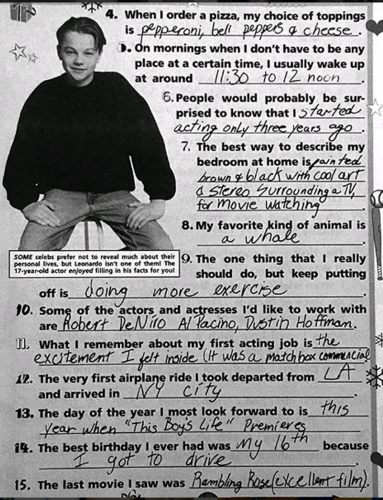 4. When I order a pizza, my choice of toppings
is pepperoni, bell peppers & cheese.
5. On mornings when I don't have to be any
place at a certain time, I usually wake up
at around 11:30 to 12 noon.
6. People would probably be sur-
prised to know that I started
acting only three years ago.
7. The best way to describe my
bedroom at home is painted
brown & black with cool art
a stereo surrounding a TV,
for movie watching
8. My favorite kind of animal is
a whale.
SOME celebs prefer not to reveal much about their
personal lives, but Leonardo isn't one of them! The
17-year-old actor enjoyed filling in his facts for you!
9. The one thing that I really
should do, but keep putting
off is doing more exercise.
10. Some of the actors and actresses I'd like to work with
are Robert DeNiro Al Pacino, Dustin Hoffman.
11. What I remember about my first acting job is the
excitement I felt inside (It was a matchbox commercial
12. The very first airplane ride I took departed from LA
and arrived in NY City.
13. The day of the year I most look forward to is this
year when "This Boy's Life" Premieres
14. The best birthday I ever had was my 16th because
I got to drive.
15. The last movie I saw was Rambling Rose (excellent film).